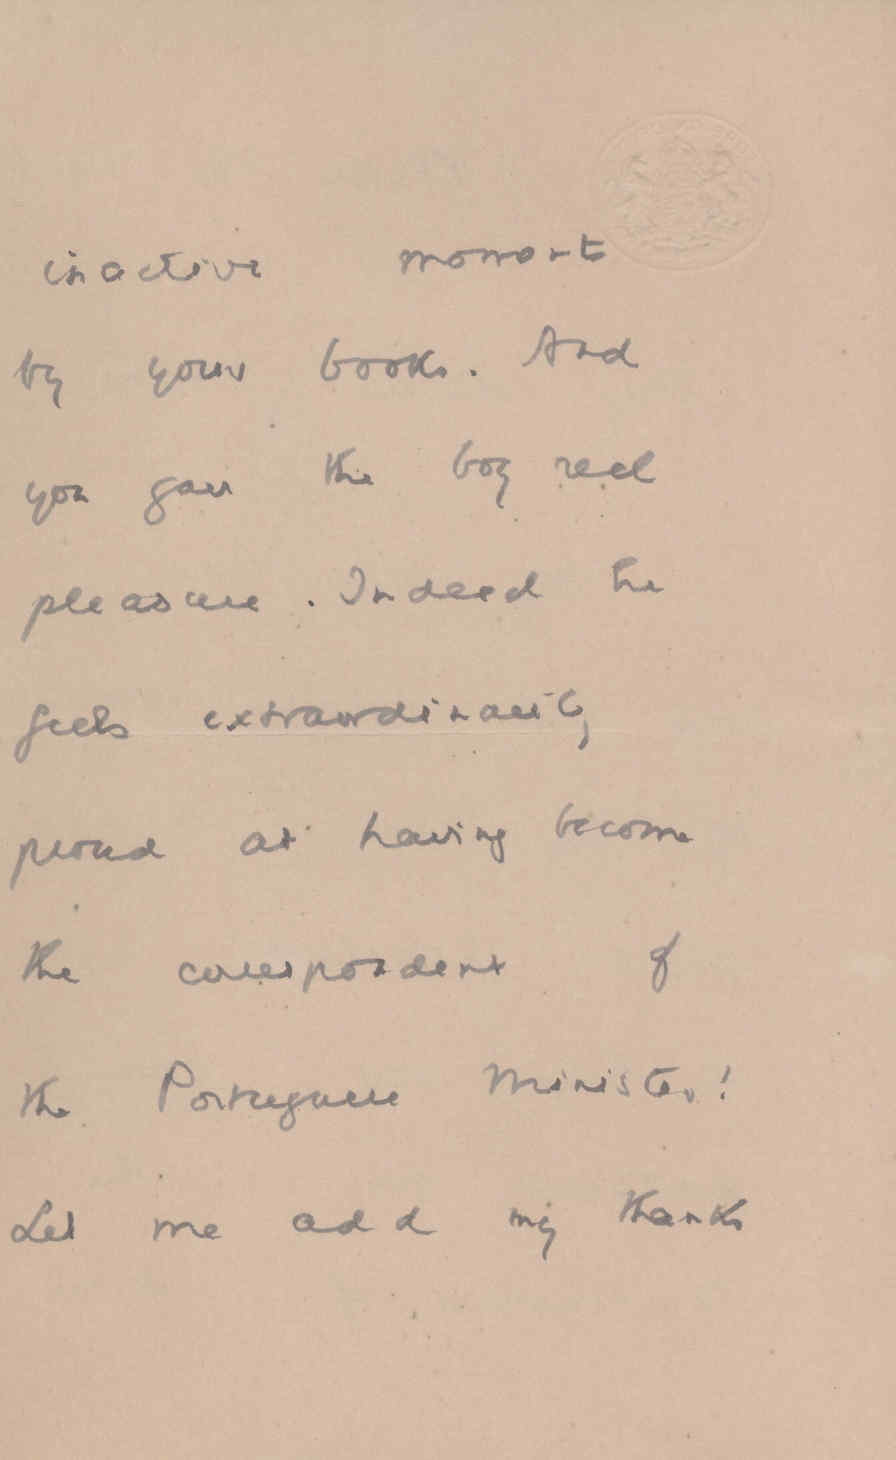 inactive moments
by your books. And
you gave the boy real
pleasure. Indeed he
feels extraordinarily
proud at having become
the correspondent of
the Portuguese Minister!
Let me add my thanks